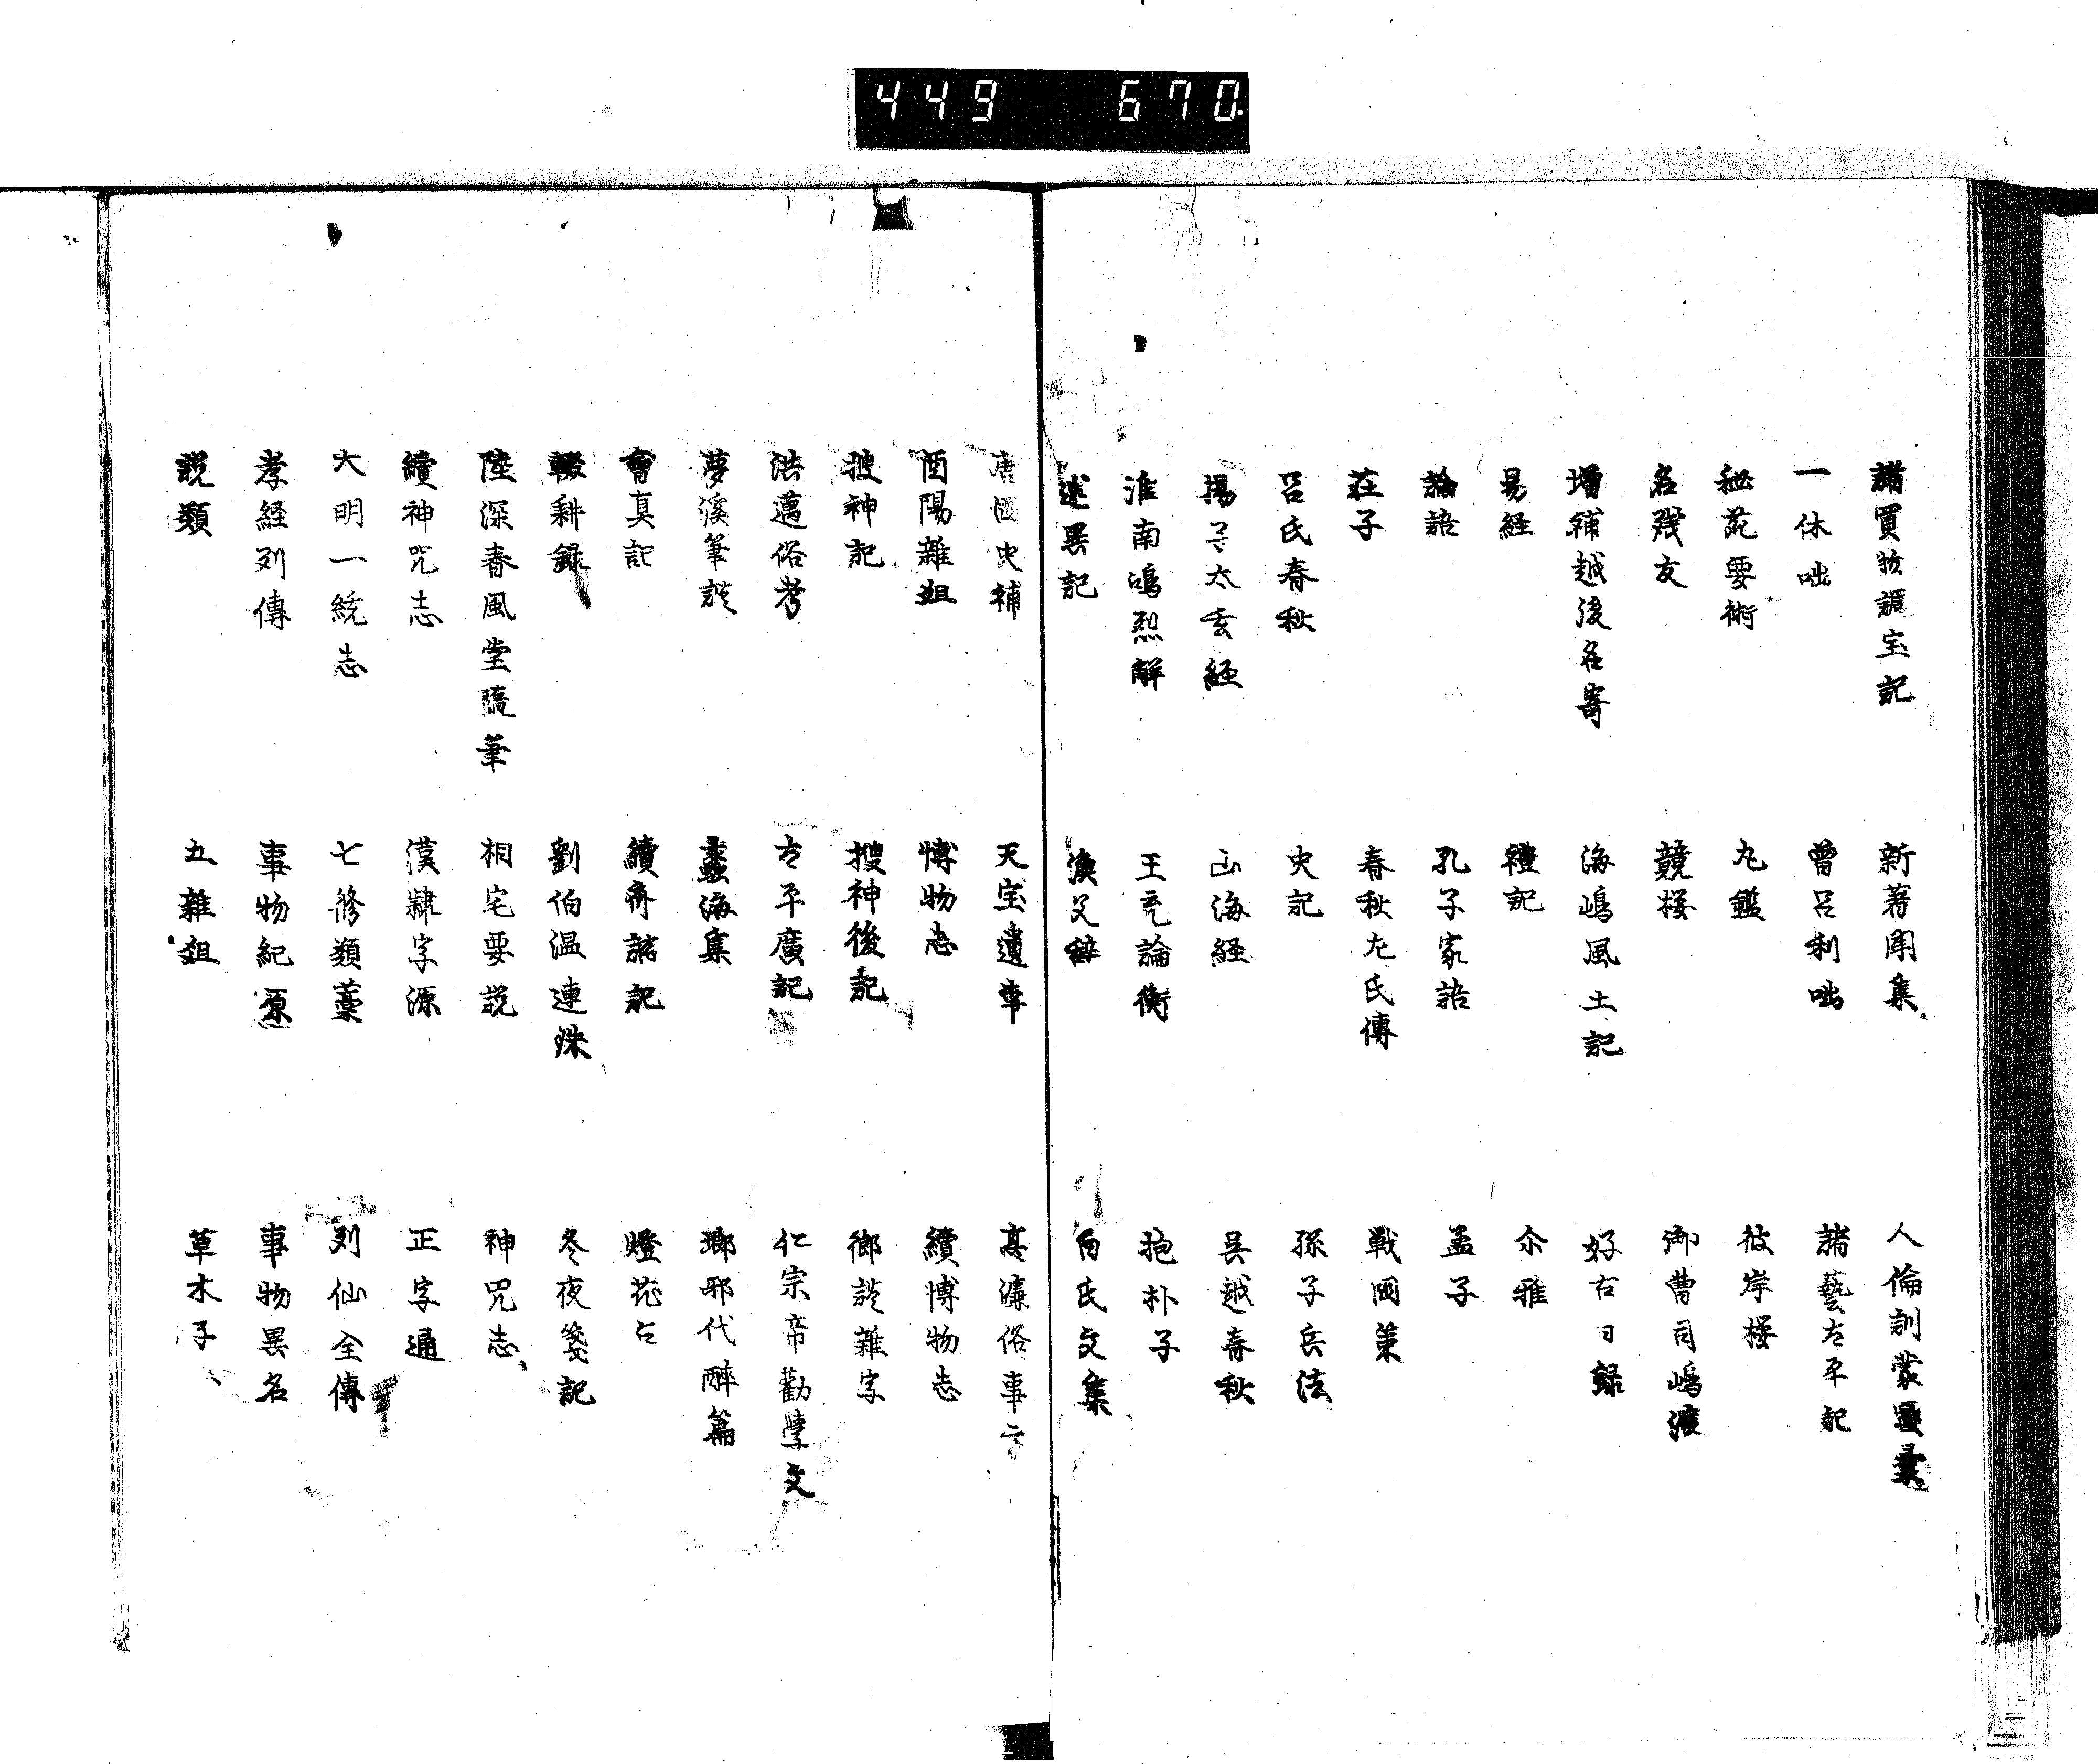 449 670
諸買物調宝記 新著聞集 人倫訓蒙圖彙
一休咄 曽呂利咄 諸藝太平記
秘苑要術 丸鑑 彼岸桜
名残友 競桜 御曹司嶋渡
増補越後名寄 海嶋風土記 好古日録
易経 禮記 尓雅
論語 孔子家語 孟子
荘子 春秋左氏傳 戦國策
呂氏春秋 史記 孫子兵法
揚子太玄経 山海経 呉越春秋
淮南鴻烈解 王充論衡 抱朴子
述異記 漁父辞 白氏文集
唐國史補 天宝遺事 高濂俗事方
酉陽雜俎 博物志 續博物志
捜神記 搜神後記 郷談雜字
洪邁俗考 太平廣記 仁宗帝勸學文
夢溪筆談 蠡海集 瑯邪代醉篇
會真記 續齊諧記 燈花占
輟耕録 劉伯温連珠 冬夜箋記
陸深春風堂隨筆 相宅要説 神咒志
續神咒志 漢隷字源 正字通
大明一統志 七修類藁 列仙全傳
孝経列傳 事物紀原 事物異名
説類 五雜俎 草木子